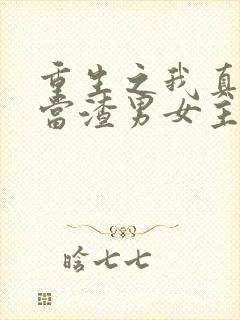 重生之我真
当渣男女主
晗七七